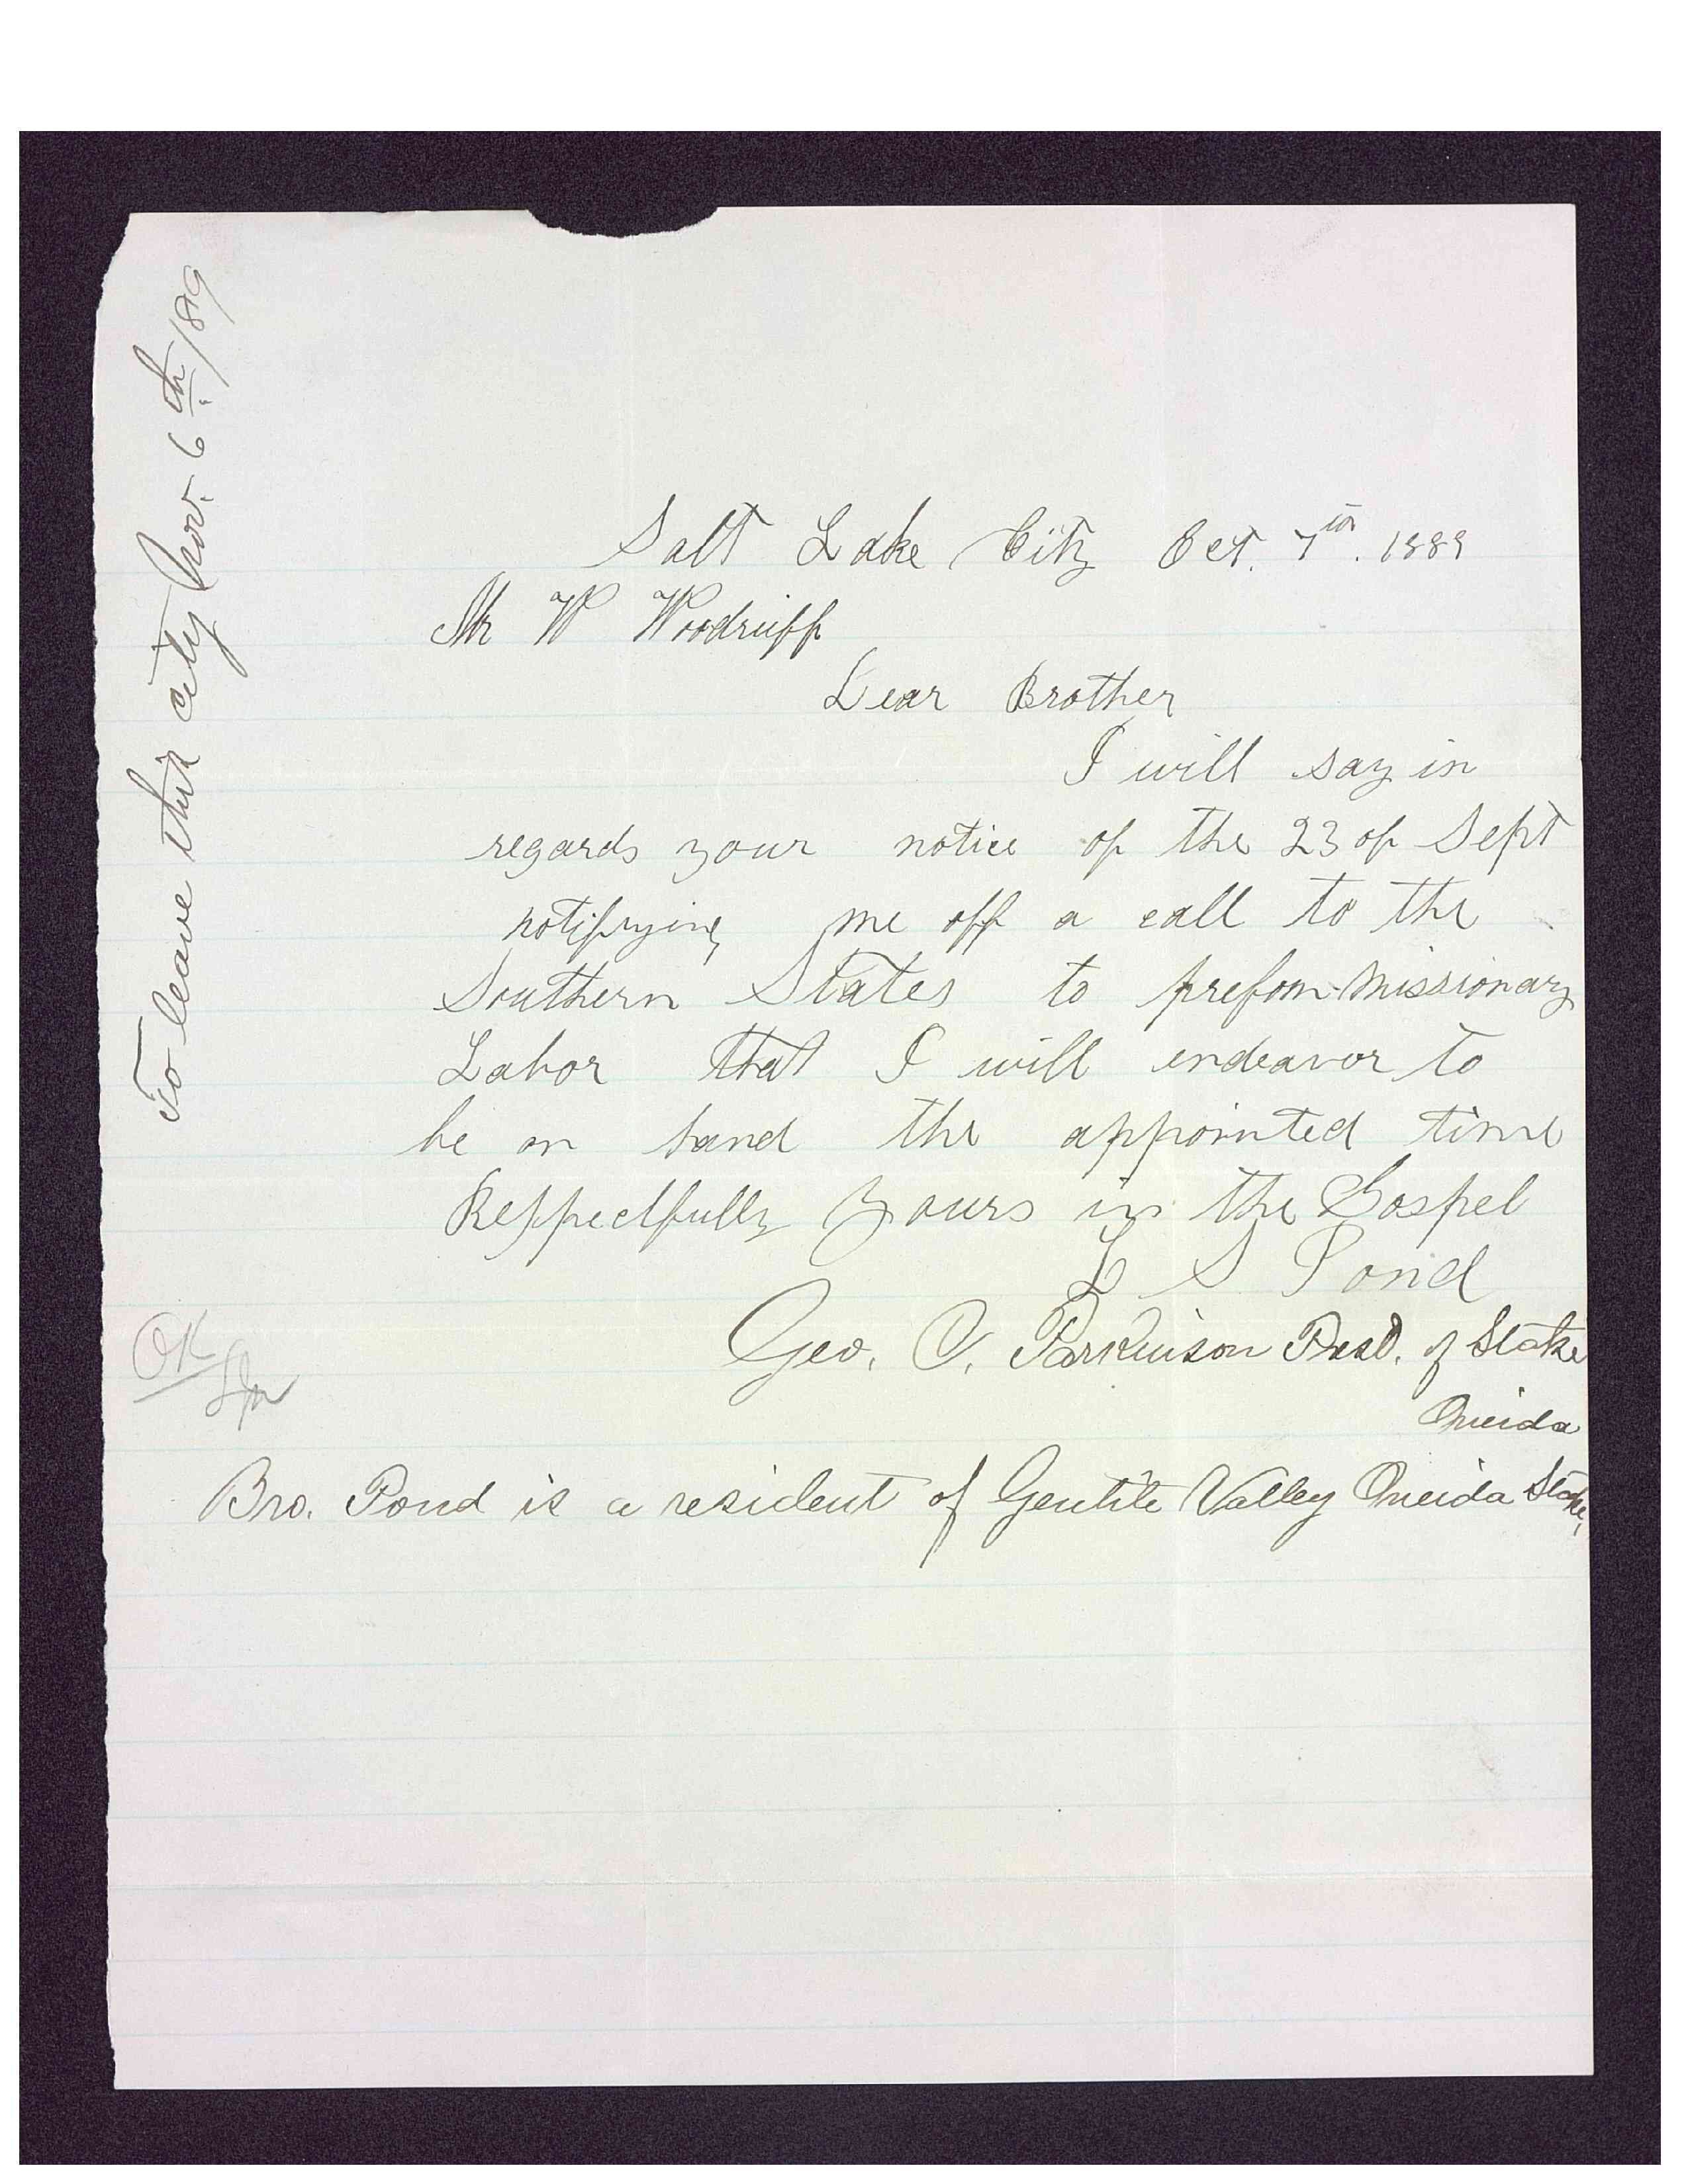 Salt Lake City Oct. 7th. 1889
Mr W Woodruff
Dear Brother
I will say in
regards your notice of the 23 of Sept
notifying me off a call to the
Southern States to prefom missionary
Labor that I will endeavor to
be on hand the appointed time
Respectfully Yours in the Gospel
L S Pond
Geo. C. Parkinson Prest. of Stake
Oneida
Bro. Pond is a resident of Gentile Valley Oneida Stake,
To leave this city Nov. 6th/89
OK